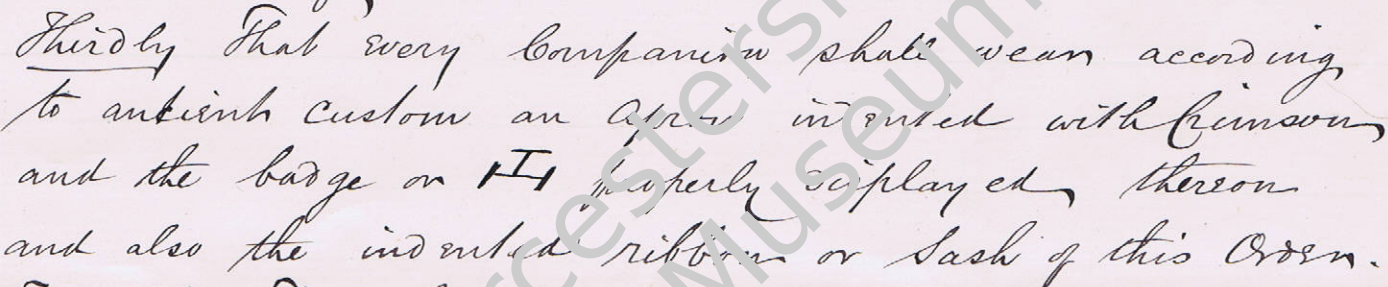 Thirdly That every Companion shall wear according
to antient custom an apron indented with Crimson
and the badge or properly displayed thereon
and also the indented ribbon or Sash of this Order.